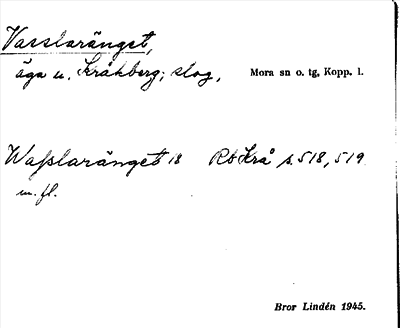 Vasslaränget,
äga u. Kråkberg; slog, Mora sn o. tg, Kopp. l.
Waßlaränget 18 RS Krå s. 518, 519
m. fl.
Bror Lindén 1945.